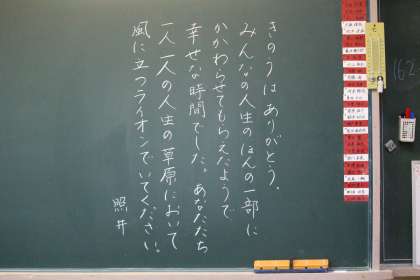 きのうはありがとう。
みんなの人生のほんの一部に
かかわらせてもらえたようで
幸せな時間でした。あなたたち
一人一人の人生の草原において
風に立つライオンでいてください。
照井
162